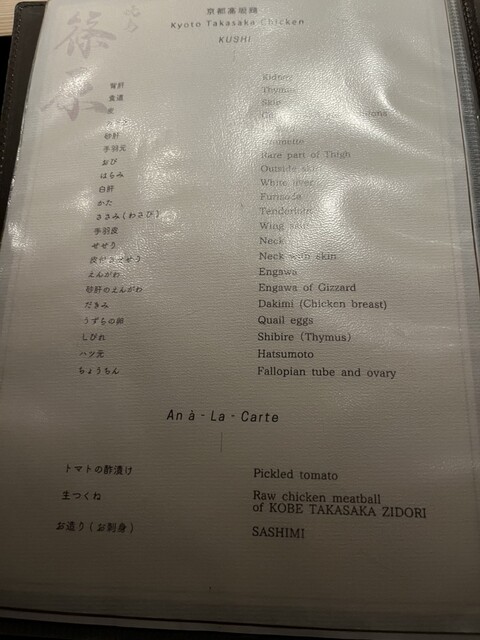 京都高坂鶏
Kyoto Takasaka Chicken
KUSHI
背肝 Kidney
食道 Thymus
皮 Skin
砂肝
手羽元
おび Rare part of Thigh
はらみ Outside skirt
白肝 White liver
かた Furisode
ささみ(わさび) Tenderloin
手羽皮 Wing skin
せせり Neck
皮付きせせり Neck with skin
えんがわ Engawa
砂肝のえんがわ Engawa of Gizzard
だきみ Dakimi (Chicken breast)
うずらの卵 Quail eggs
しびれ Shibire (Thymus)
ハツ元 Hatsumoto
ちょうちん Fallopian tube and ovary
An à - La - Carte
トマトの酢漬け Pickled tomato
生つくね Raw chicken meatball
of KOBE TAKASAKA ZIDORI
お造り(お刺身) SASHIMI